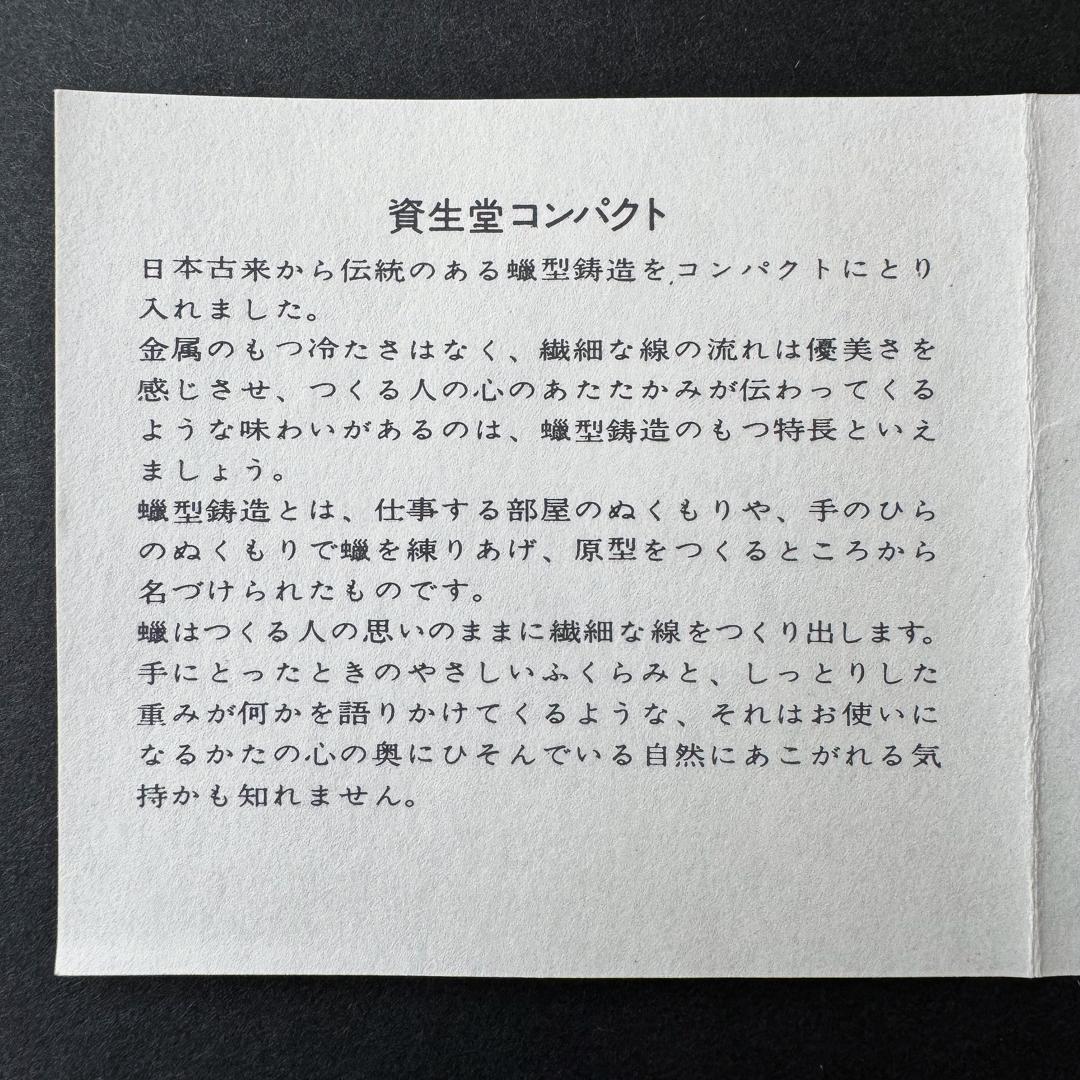 資生堂コンパクト
日本古来から伝統のある蠟型鋳造をコンパクトにとり
入れました。
金属のもつ冷たさはなく、繊細な線の流れは優美さを
感じさせ、つくる人の心のあたたかみが伝わってくる
ような味わいがあるのは、蠟型鋳造のもつ特長といえ
ましょう。
蠟型鋳造とは、仕事する部屋のぬくもりや、手のひら
のぬくもりで蠟を練りあげ、原型をつくるところから
名づけられたものです。
蠟はつくる人の思いのままに繊細な線をつくり出します。
手にとったときのやさしいふくらみと、しっとりした
重みが何かを語りかけてくるような、それはお使いに
なるかたの心の奥にひそんでいる自然にあこがれる気
持かも知れません。